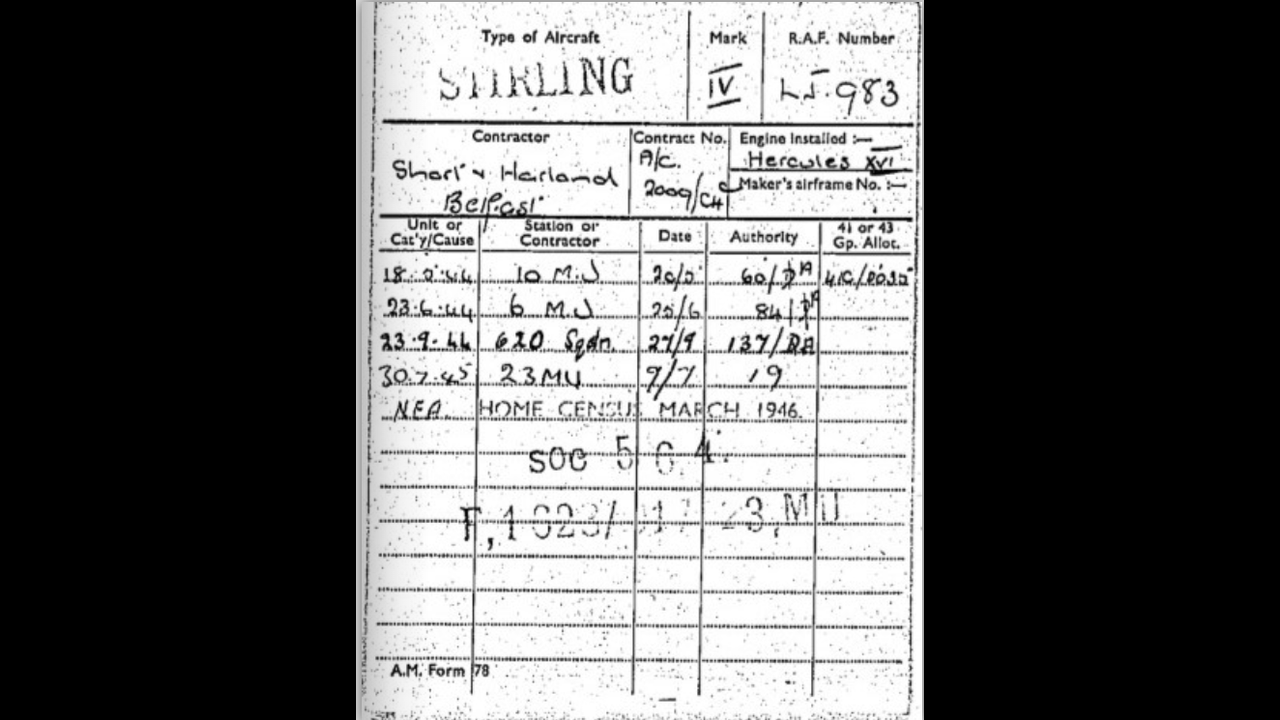 Type of Aircraft Mark R.A.F. Number
STIRLING IV LJ.983
Contractor Contract No. Engine Installed :—
Short & Harland A/C. Hercules XVI
Belfast 2009/C4 Maker's airframe No. :—
Unit or Cat'y/Cause Station or Contractor Date Authority 41 or 43 Gp. Allot.
10 M.U 60/DA
23.6.44 6 M.U 25/6 84/DA
23.9.44 620 Sqdn. 27/9 137/DA
30.7.45 23 MU 9/7 19
NEA HOME CENSUS MARCH 1946.
SOC 5 6 4.
23, MU
A.M. Form 78